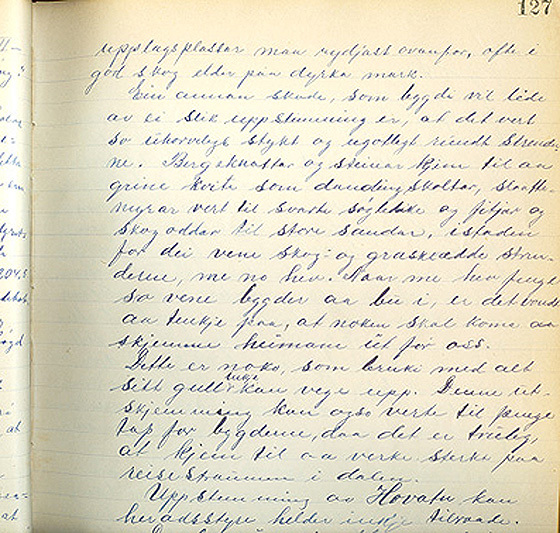 127
upplagsplassar maa rydjast ovanfor, ofte i
god skog elder paa dyrka mark.
Ein annan skade, som bygdi vil lide
av ei slik uppstemming er, at det vert
so uhorveleg stykt og ufyselegt rundt Strendi-
ne. Bergeknattar og steinar kjem til aa
grine kvite som daudingskoltar, slaatte-
myrar vert til svarte søylehav og fitjar og
skogoddar til store sandar, istaden
for dei vene skog- og graskledde stran-
derne, me no hev. Naar me hev fenge
so vene bygder aa bu i, er det vondt
aa tenkje paa, at noken skal koma aa
skjemme heimane ut for oss.
Dette er noko, som bruki med alt
sitt gull inkje kan vege upp. Denne ut-
skjemming kan ogso verte til penge
tap for bygderne, daa det er truleg,
at kjem til aa verke sterkt paa
reisestraumen i dalen.
Uppstemming av Hovatn kan
heradsstyre helder inkje tilraade.